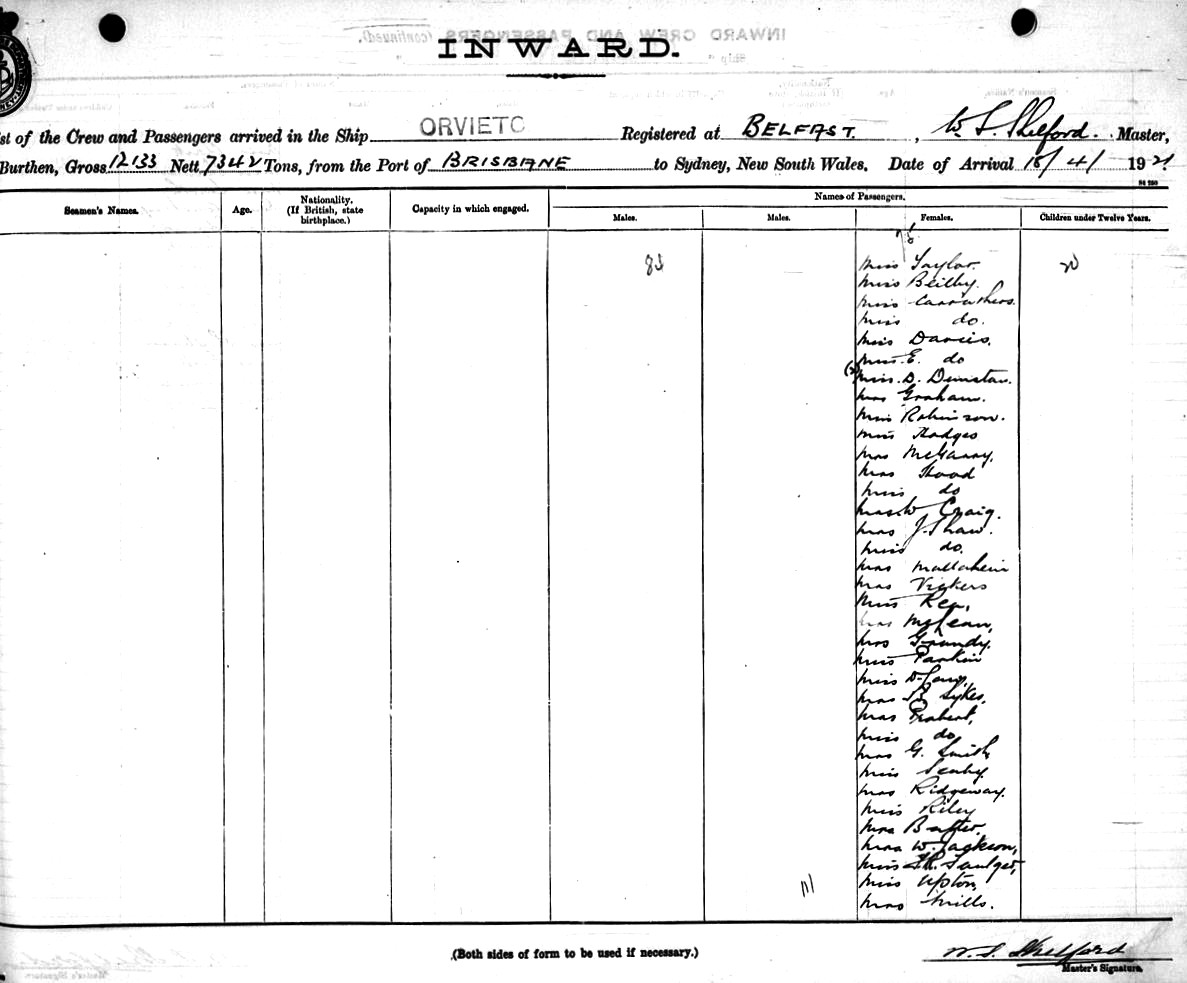 INWARD.
st of the Crew and Passengers arrived in the Ship ORVIETO Registered at BELFAST. , W. S. Shelford. Master,
Burthen, Gross 12133 Nett 7342 Tons, from the Port of BRISBANE to Sydney, New South Wales. Date of Arrival 18/4/ 1921
Seamen's Names.
Age.
Nationality.
(If British, state
birthplace.)
Capacity in which engaged.
Names of Passengers.
Males.
Males.
Females.
Children under Twelve Years.
Miss Taylor.
Miss Beilby.
Miss Carruthers.
Miss do.
Miss Davies.
Miss. E. do
Miss. D. Dunstan.
Mrs Graham.
Miss Robinson.
Miss Hodges
Mrs McGarry,
Mrs Hood
Miss do
Mrs. W Craig.
Mrs J. Shaw.
Miss do.
Mrs
Mrs Vickers
Miss Rea,
Mrs McLean,
Mrs Grundy.
Miss Parkin
Miss D. Long,
Mrs B Sykes,
Mrs Probert,
Miss do
Mrs G. Smith
Miss
Mrs Ridgeway.
Miss Riley
Mrs
Mrs W. Jackson,
Miss
Miss Upton,
Mrs Mills.
(Both sides of form to be used if necessary.)
W. S. Shelford
Master's Signature.